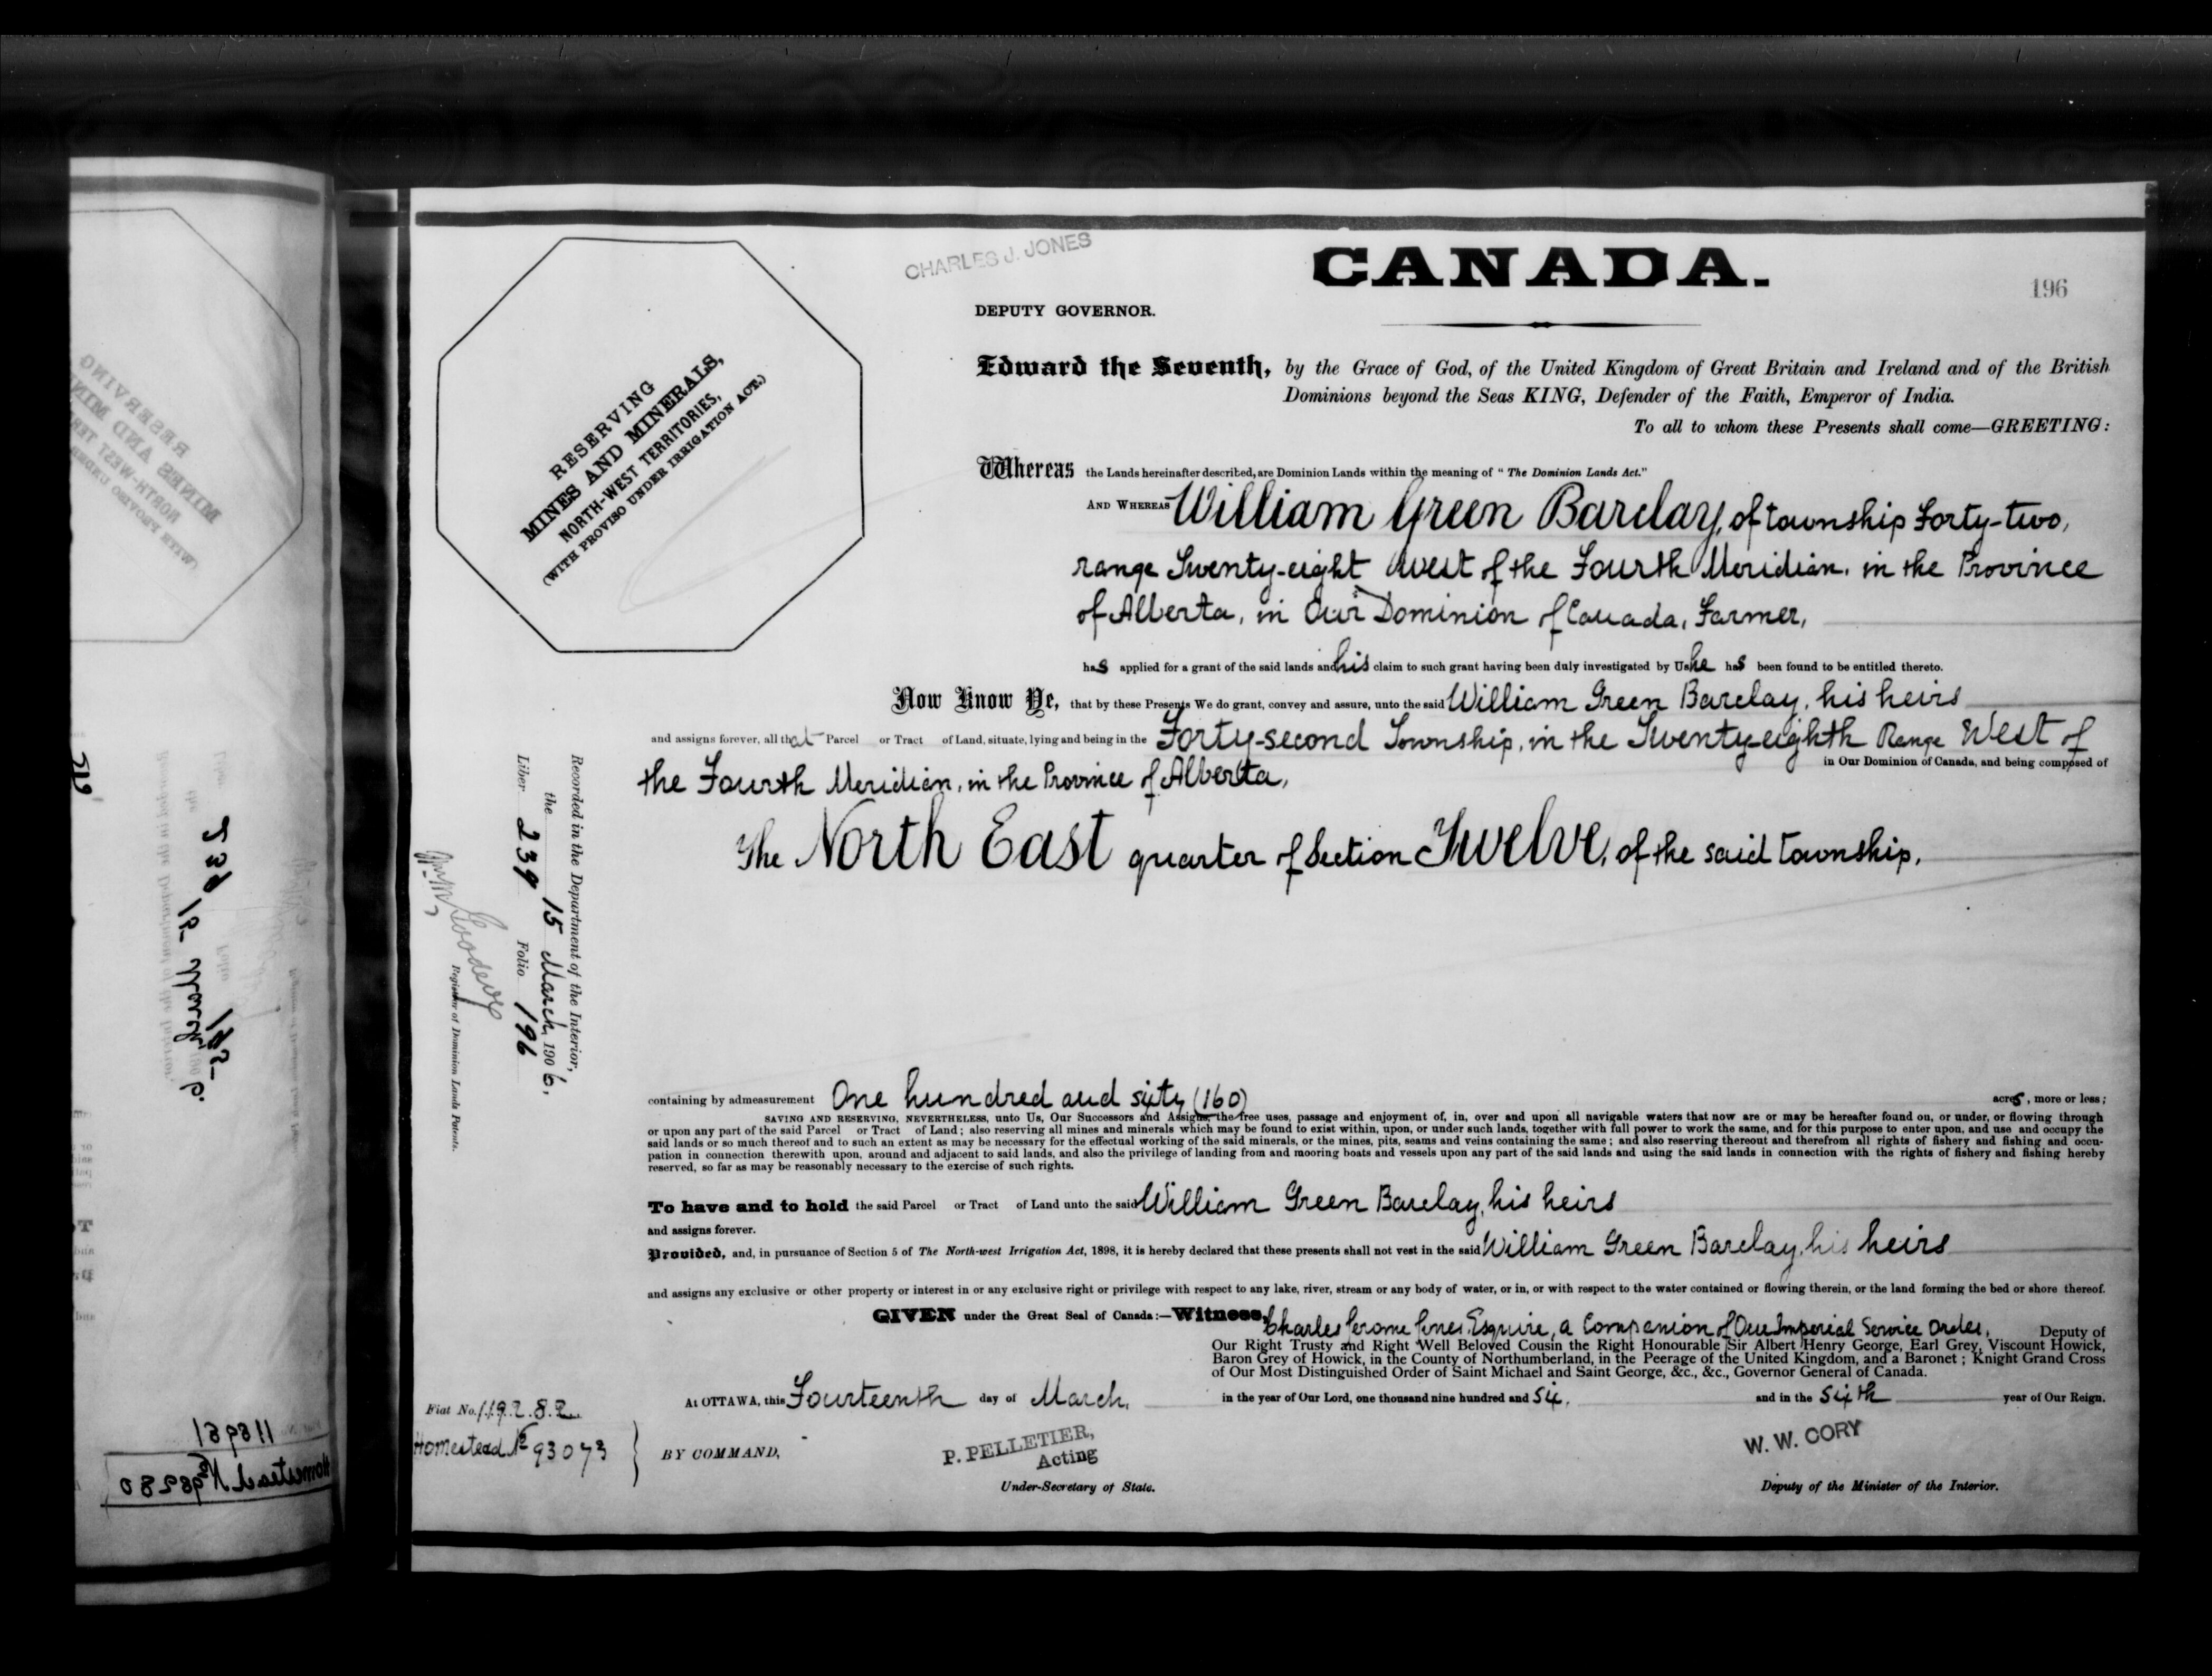 CHARLES J. JONES
CANADA.
196
DEPUTY GOVERNOR.
RESERVING
MINES AND MINERALS,
NORTH-WEST TERRITORIES,
(WITH PROVISO UNDER IRRIGATION ACT.)
Edward the Seventh, by the Grace of God, of the United Kingdom of Great Britain and Ireland and of the British
Dominions beyond the Seas KING, Defender of the Faith, Emperor of India.
To all to whom these Presents shall come—GREETING:
Whereas the Lands hereinafter described, are Dominion Lands within the meaning of "The Dominion Lands Act."
AND WHEREAS William Green Barclay, of township Forty-two,
range Twenty-eight West of the Fourth Meridian, in the Province
of Alberta, in Our Dominion of Canada, Farmer,
has applied for a grant of the said lands and his claim to such grant having been duly investigated by Us he has been found to be entitled thereto.
Now Know Ye, that by these Presents We do grant, convey and assure, unto the said William Green Barclay, his heirs
and assigns forever, all that Parcel or Tract of Land, situate, lying and being in the Forty-second Township, in the Twenty-eighth Range West of
the Fourth Meridian, in the Province of Alberta, in Our Dominion of Canada, and being composed of
The North East quarter of Section Twelve, of the said township.
Recorded in the Department of the Interior,
the 15 March, 1906,
Liber 239 Folio 196
Registrar of Dominion Lands Patents.
containing by admeasurement One hundred and sixty (160) acres, more or less;
SAVING AND RESERVING, NEVERTHELESS, unto Us, Our Successors and Assigns, the free uses, passage and enjoyment of, in, over and upon all navigable waters that now are or may be hereafter found on, or under, or flowing through
or upon any part of the said Parcel or Tract of Land; also reserving all mines and minerals which may be found to exist within, upon, or under such lands, together with full power to work the same, and for this purpose to enter upon, and use and occupy the
said lands or so much thereof and to such an extent as may be necessary for the effectual working of the said minerals, or the mines, pits, seams and veins containing the same; and also reserving thereout and therefrom all rights of fishery and fishing and occu-
pation in connection therewith upon, around and adjacent to said lands, and also the privilege of landing from and mooring boats and vessels upon any part of the said lands and using the said lands in connection with the rights of fishery and fishing hereby
reserved, so far as may be reasonably necessary to the exercise of such rights.
To have and to hold the said Parcel or Tract of Land unto the said William Green Barclay, his heirs
and assigns forever.
Provided, and, in pursuance of Section 5 of The North-west Irrigation Act, 1898, it is hereby declared that these presents shall not vest in the said William Green Barclay, his heirs
and assigns any exclusive or other property or interest in or any exclusive right or privilege with respect to any lake, river, stream or any body of water, or in, or with respect to the water contained or flowing therein, or the land forming the bed or shore thereof.
GIVEN under the Great Seal of Canada:—Witness, Charles Jerome Jones, Esquire, a Companion of Our Imperial Service Order, Deputy of
Our Right Trusty and Right Well Beloved Cousin the Right Honourable Sir Albert Henry George, Earl Grey, Viscount Howick,
Baron Grey of Howick, in the County of Northumberland, in the Peerage of the United Kingdom, and a Baronet; Knight Grand Cross
of Our Most Distinguished Order of Saint Michael and Saint George, &c., &c., Governor General of Canada.
At OTTAWA, this Fourteenth day of March, in the year of Our Lord, one thousand nine hundred and Six, and in the Sixth year of Our Reign.
Fiat No. 119282
Homestead No 93073
BY COMMAND,
P. PELLETIER,
Acting
Under-Secretary of State.
W. W. CORY
Deputy of the Minister of the Interior.